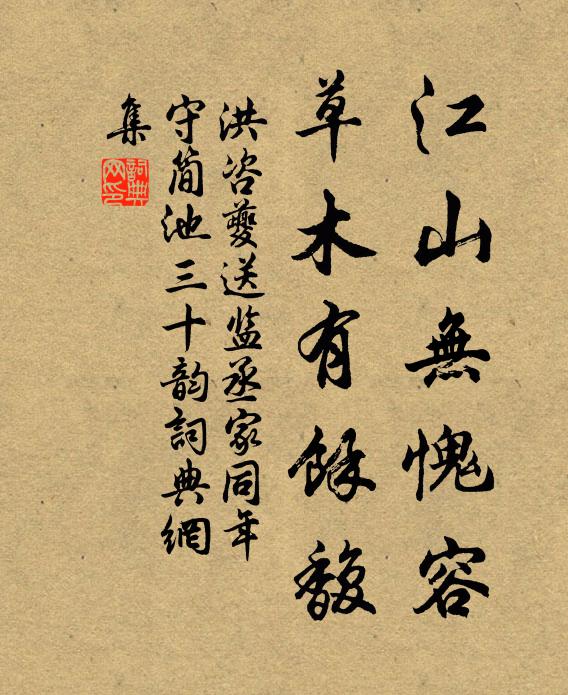 江山無愧容
草木有餘馥
洪咨夔送监丞家同年
守简池三十韵詞典網
集
詞典網印